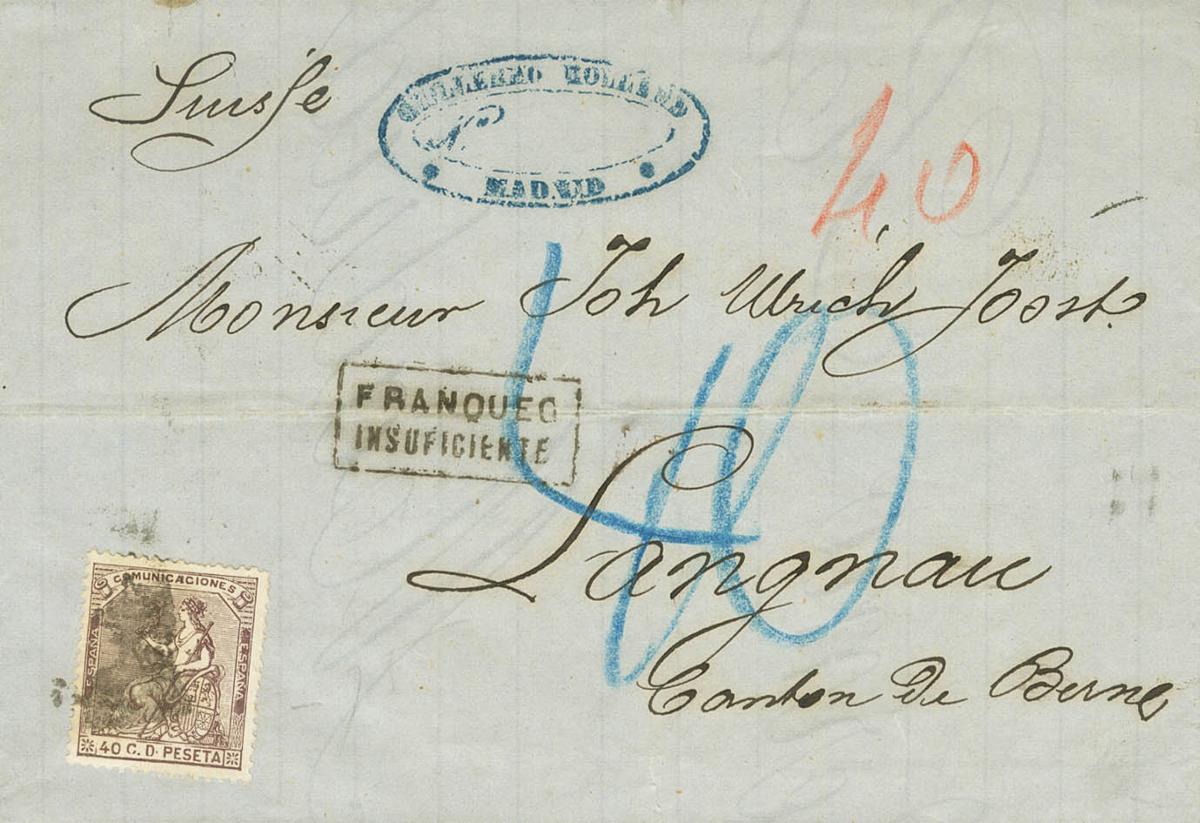 Suisse
GUILLERMO ROLLAND
MADRID
40
Monsieur Joh Ulrich Joost
40
FRANQUEO
INSUFICIENTE
Langnau
Canton De Berne
COMUNICACIONES
ESPAÑA
ESPAÑA
40 C. D. PESETA